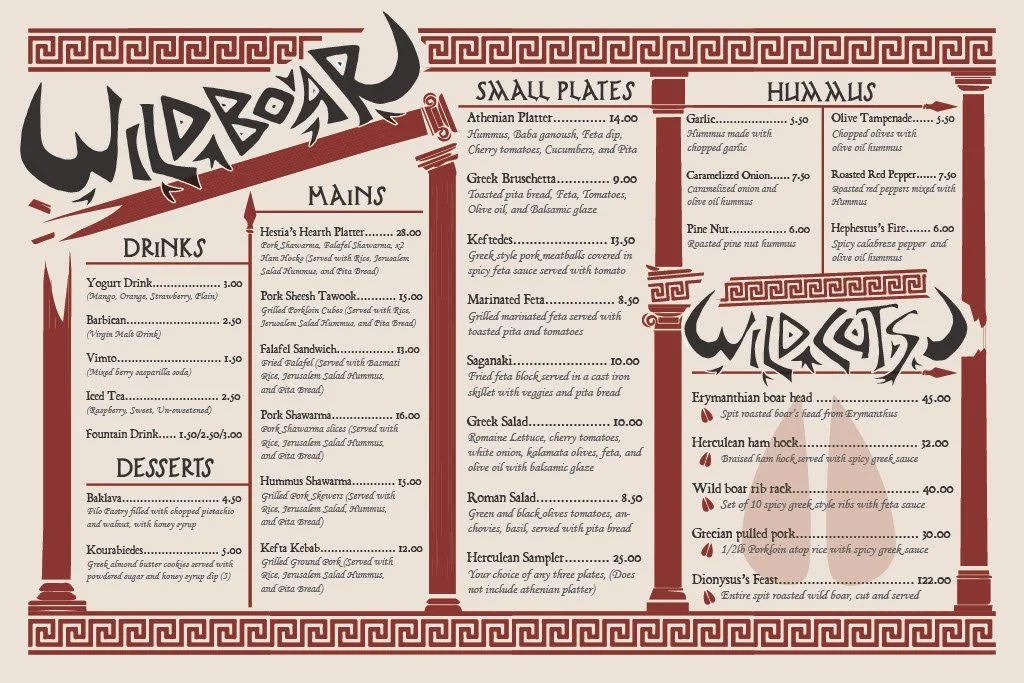 WILDBOAR
DRINKS
Yogurt Drink.................... 3.00
(Mango, Orange, Strawberry, Plain)
Barbican........................... 2.50
(Virgin Malt Drink)
Vimto............................... 1.50
(Mixed berry sasparilla soda)
Iced Tea............................ 2.50
(Raspberry, Sweet, Un-sweetened)
Fountain Drink..... 1.50/2.50/3.00
DESSERTS
Baklava............................. 4.50
Filo Pastry filled with chopped pistachio
and walnut, with honey syrup
Kourabiedes...................... 5.00
Greek almond butter cookies served with
powdered sugar and honey syrup dip (5)
MAINS
Hestia's Hearth Platter........ 28.00
Pork Shawarma, Falafel Shawarma, x2
Ham Hocks (Served with Rice, Jerusalem
Salad Hummus, and Pita Bread)
Pork Sheesh Tawook.......... 15.00
Grilled Porkloin Cubes (Served with Rice,
Jerusalem Salad Hummus, and Pita Bread)
Falafel Sandwich................ 13.00
Fried Falafel (Served with Basmati
Rice, Jerusalem Salad Hummus,
and Pita Bread)
Pork Shawarma................. 16.00
Pork Shawarma slices (Served with
Rice, Jerusalem Salad Hummus,
and Pita Bread)
Hummus Shawarma............ 15.00
Grilled Pork Skewers (Served with
Rice, Jerusalem Salad, Hummus,
and Pita Bread)
Kefta Kebab...................... 12.00
Grilled Ground Pork (Served with
Rice, Jerusalem Salad Hummus,
and Pita Bread)
SMALL PLATES
Athenian Platter............. 14.00
Hummus, Baba ganoush, Feta dip,
Cherry tomatoes, Cucumbers, and Pita
Greek Bruschetta............. 9.00
Toasted pita bread, Feta, Tomatoes,
Olive oil, and Balsamic glaze
Keftedes........................ 13.50
Greek style pork meatballs covered in
spicy feta sauce served with tomato
Marinated Feta................. 8.50
Grilled marinated feta served with
toasted pita and tomatoes
Saganaki........................ 10.00
Fried feta block served in a cast iron
skillet with veggies and pita bread
Greek Salad..................... 10.00
Romaine Lettuce, cherry tomatoes,
white onion, kalamata olives, feta, and
olive oil with balsamic glaze
Roman Salad..................... 8.50
Green and black olives tomatoes, an-
chovies, basil, served with pita bread
Herculean Sampler........... 25.00
Your choice of any three plates, (Does
not include athenian platter)
HUMMUS
Garlic........................ 5.50
Hummus made with
chopped garlic
Caramelized Onion...... 7.50
Caramelized onion and
olive oil hummus
Pine Nut.................... 6.00
Roasted pine nut hummus
Olive Tampenade...... 5.50
Chopped olives with
olive oil hummus
Roasted Red Pepper...... 7.50
Roasted red peppers mixed with
Hummus
Hephestus's Fire....... 6.00
Spicy calabreze pepper and
olive oil hummus
WILD CUTS
Erymanthian boar head .......................... 45.00
Spit roasted boar's head from Erymanthus
Herculean ham hock............................. 32.00
Braised ham hock served with spicy greek sauce
Wild boar rib rack............................... 40.00
Set of 10 spicy greek style ribs with feta sauce
Grecian pulled pork............................. 30.00
1/2lb Porkloin atop rice with spicy greek sauce
Dionysus's Feast................................ 122.00
Entire spit roasted wild boar, cut and served